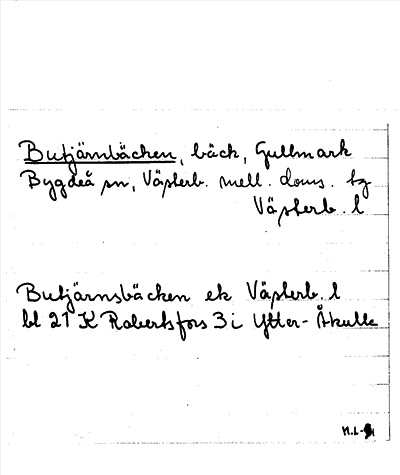 Butjärnbäcken, bäck, Gullmark
Bygdeå sn, Västerb. mell. doms. tg
Västerb. l
Butjärnsbäcken ek Västerb. l
bl 21 K Robertsfors 3 i Ytter-Åkulla
M.L-